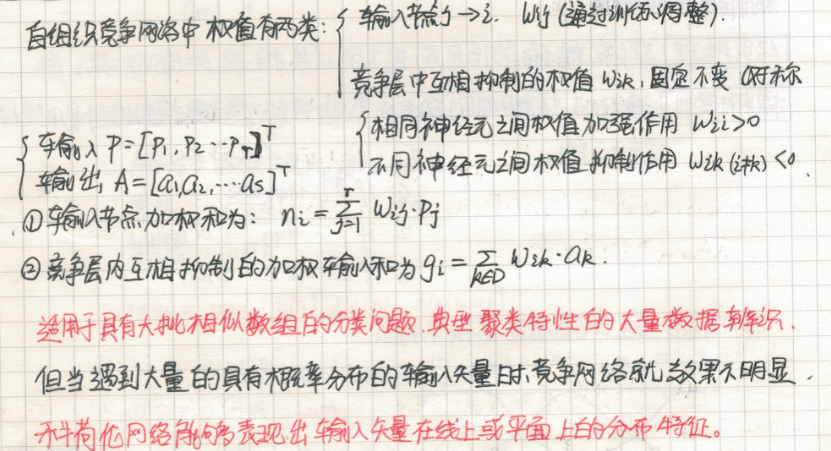 自组织竞争网络中权值有两类:{ 输入节点j→i. wij (通过训练调整).
竞争层中互相抑制的权值 wik, 固定不变 (对称
{ 输入 P=[P1, P2 ⋯ Pr]^T { 相同神经元之间权值加强作用 wii>0
输出 A=[a1, a2, ⋯ as]^T 不同神经元之间权值抑制作用 wik (i≠k) <0.
①输入节点加权和为: ni = ∑_{j=1}^{r} wij·Pj
②竞争层内互相抑制的加权输入和为 gi = ∑_{k∈D} wik·ak.
适用于具有大批相似数组的分类问题. 典型聚类特性的大量数据辨识.
但当遇到大量的具有概率分布的输入矢量时,竞争网络就效果不明显.
科荷伦网络能够表现出输入矢量在线上或平面上的分布特征。